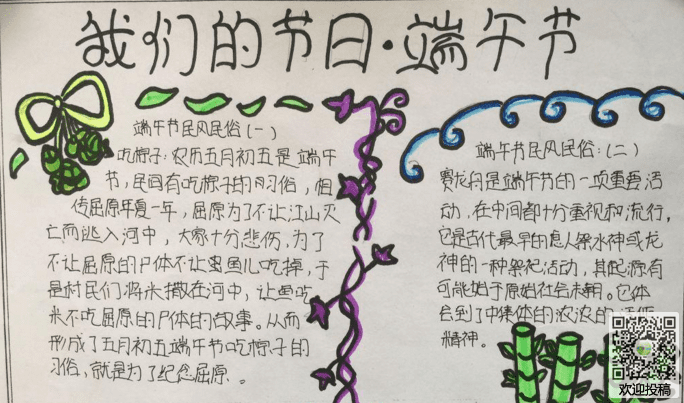 我们的节日·端午节
端午节民风民俗(一)
吃粽子:农历五月初五是端午
节,民间有吃粽子的习俗,相
传屈原年夏一年,屈原为了不让江山灭
亡而逃入河中,大家十分悲伤,为了
不让屈原的尸体不让鱼儿吃掉,于
是村民们将米撒在河中,让鱼吃
米不吃屈原的尸体的故事。从而
形成了五月初五端午节吃粽子的
习俗,就是为了纪念屈原。
端午节民风民俗:(二)
赛龙舟是端午节的一项重要活
动,在中间都十分重视和流行,
它是古代最早的息人祭水神或龙
神的一种祭祀活动,其起源有
可能始于原始社会末期。它体
会到了中集体的浓浓的
精神。
欢迎投稿